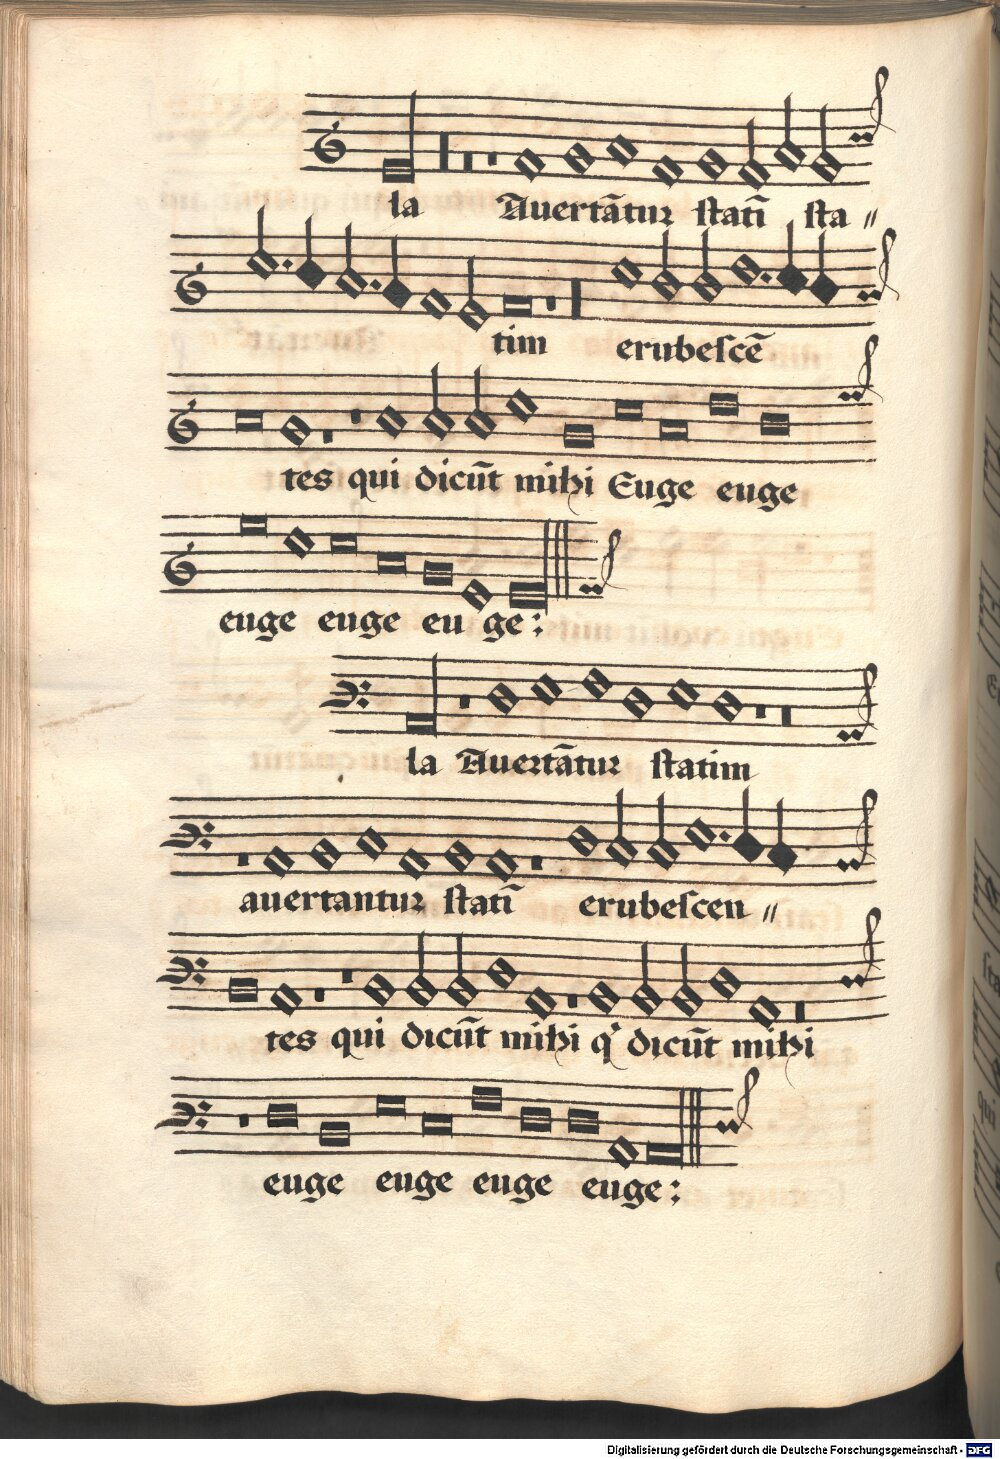 la Auertãtur statĩ sta〃
tim erubescẽ
tes qui dicũt mihi Euge euge
euge euge eu ge:
la Auertãtur statim
auertantur statĩ erubescen〃
tes qui dicũt mihi q dicũt mihi
euge euge euge euge:
Digitalisierung gefördert durch die Deutsche Forschungsgemeinschaft - DFG